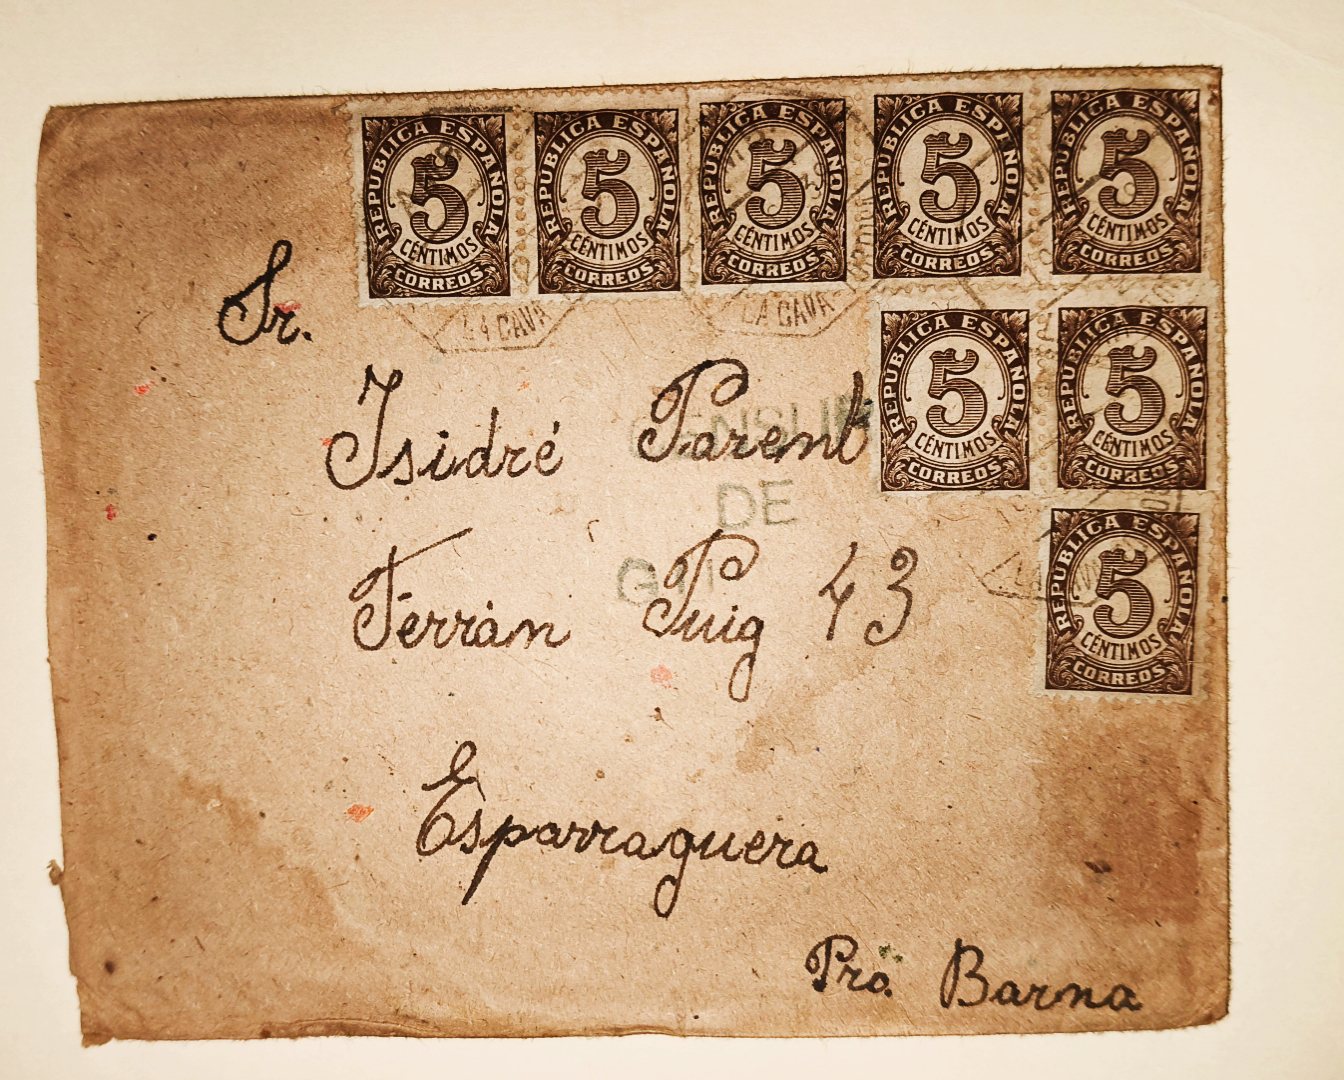 REPUBLICA ESPAÑOLA 5 CÉNTIMOS CORREOS
REPUBLICA ESPAÑOLA 5 CÉNTIMOS CORREOS
REPUBLICA ESPAÑOLA 5 CÉNTIMOS CORREOS
REPUBLICA ESPAÑOLA 5 CÉNTIMOS CORREOS
REPUBLICA ESPAÑOLA 5 CÉNTIMOS CORREOS
LA CAVA
LA CAVA
REPUBLICA ESPAÑOLA 5 CÉNTIMOS CORREOS
REPUBLICA ESPAÑOLA 5 CÉNTIMOS CORREOS
REPUBLICA ESPAÑOLA 5 CÉNTIMOS CORREOS
Sr.
Isidré Parent
DE
Ferrán Puig 43
Esparraguera
Pro. Barna